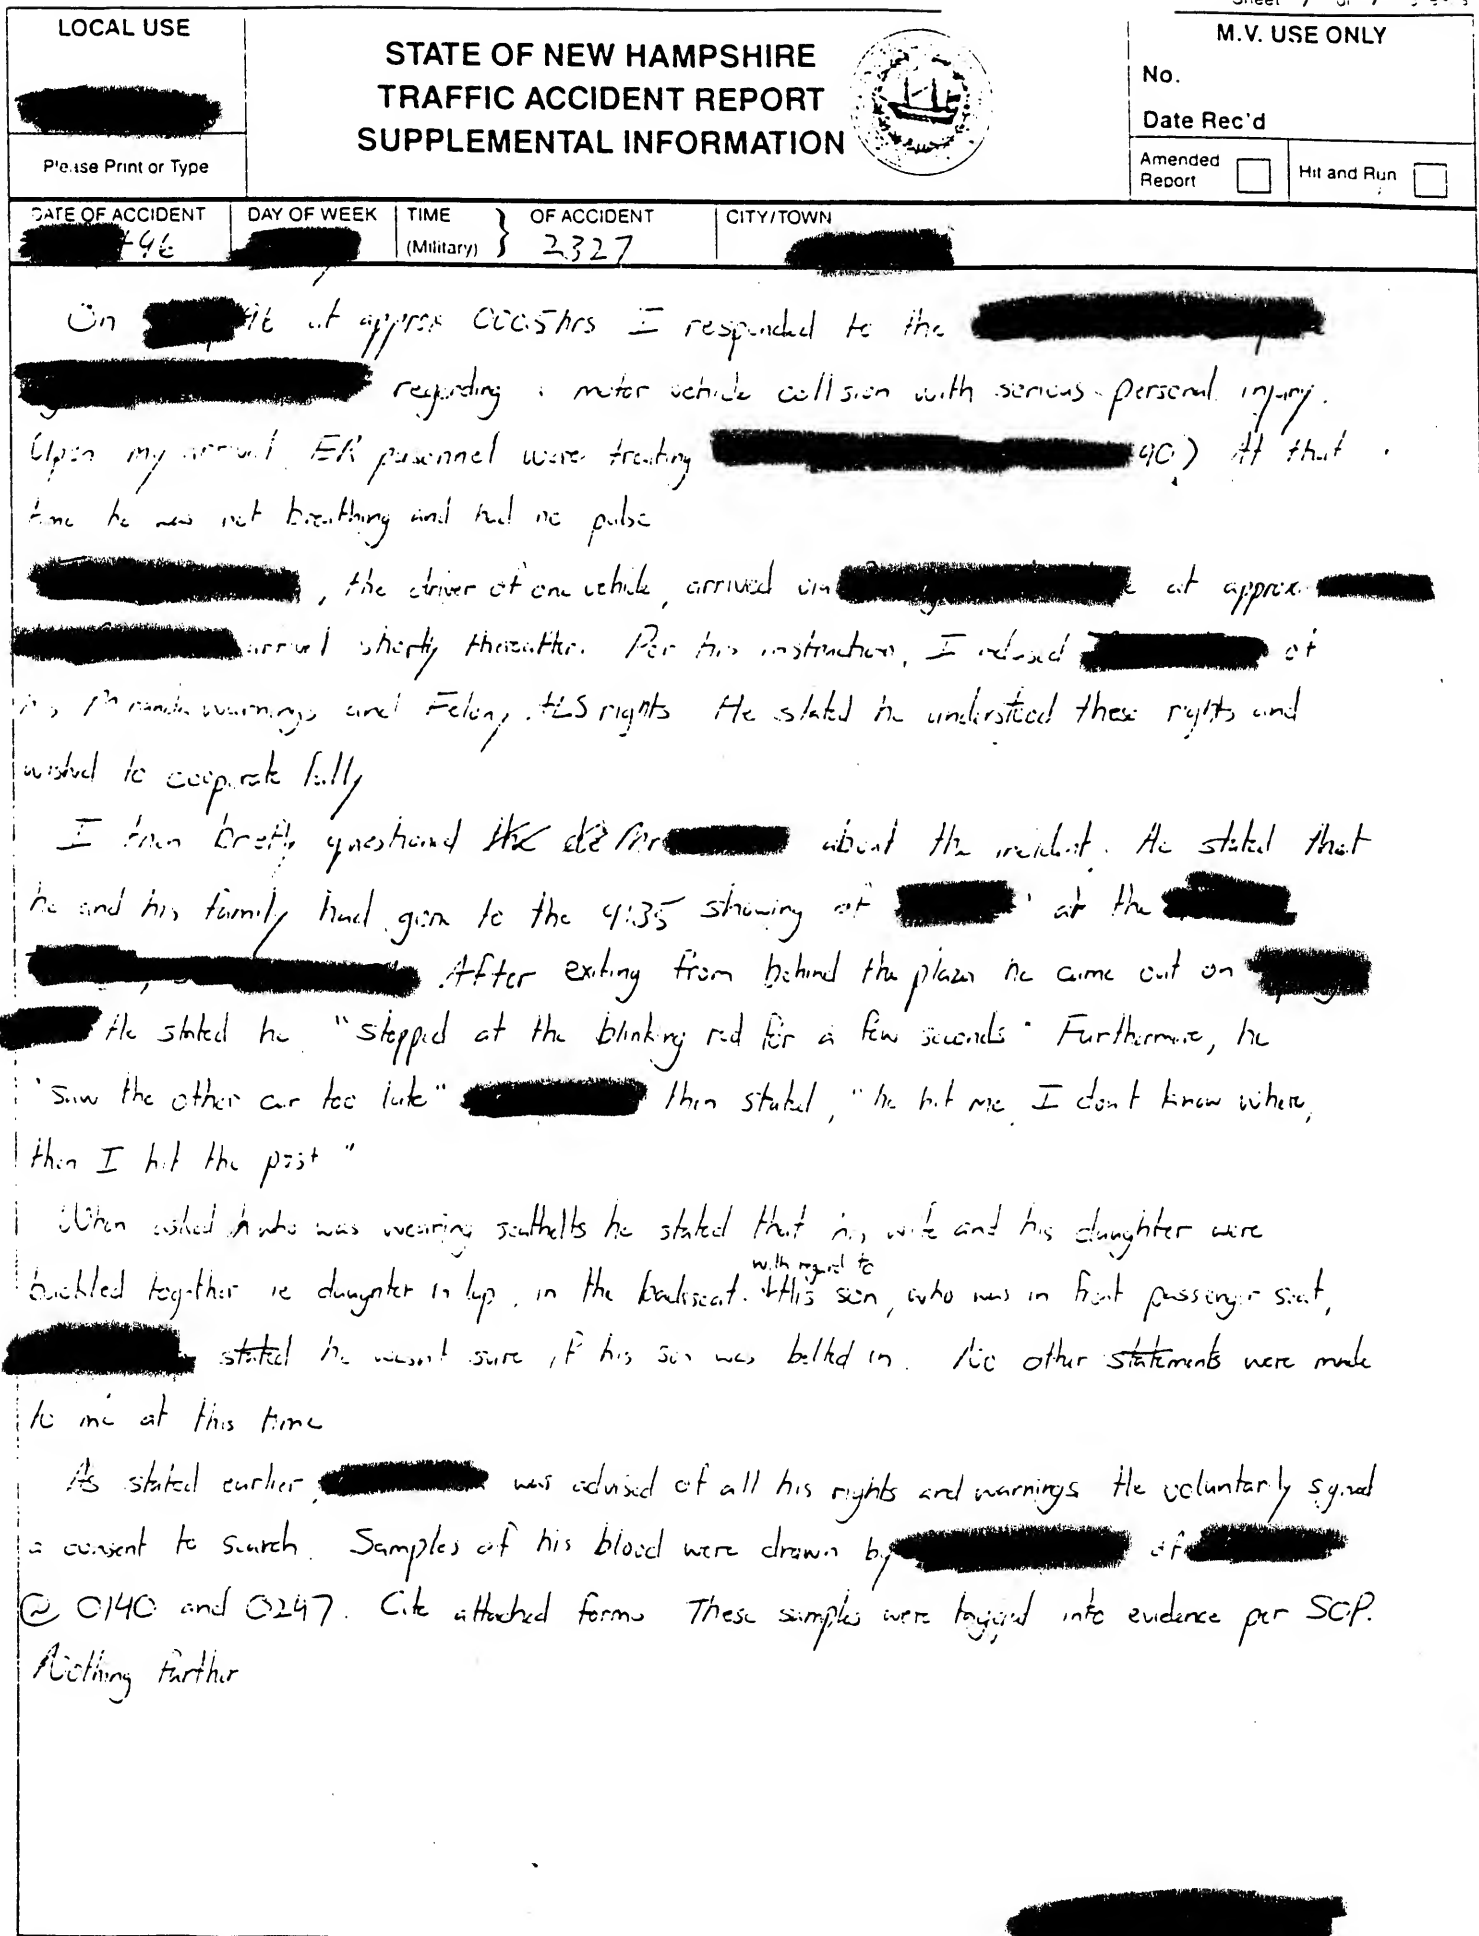 LOCAL USE
Please Print or Type
STATE OF NEW HAMPSHIRE
TRAFFIC ACCIDENT REPORT
SUPPLEMENTAL INFORMATION
M.V. USE ONLY
No.
Date Rec'd
Amended Report
Hit and Run
DATE OF ACCIDENT
DAY OF WEEK
TIME (Military) OF ACCIDENT 2327
CITY/TOWN
On at approx 0005hrs I responded to the
regarding a motor vehicle collision with serious personal injury.
Upon my arrival ER personnel were treating 90) At that
time he was not breathing and had no pulse
, the driver of one vehicle, arrived via at approx
arrival shortly thereafter. Per his instruction, I advised of
his Miranda warnings and Felony ALS rights He stated he understood these rights and
wished to cooperate fully
I then briefly questioned Mr about the incident. He stated that
he and his family had gone to the 4:35 showing of at the
After exiting from behind the plaza he came out on
He stated he "stopped at the blinking red for a few seconds" Furthermore, he
"saw the other car too late" then stated, "he hit me, I don't know where,
then I hit the post"
When asked who was wearing seatbelts he stated that his wife and his daughter were
buckled together ie daughter in lap, in the backseat. with regard to his son, who was in front passenger seat,
stated he wasn't sure if his son was belted in. No other statements were made
to me at this time
As stated earlier, was advised of all his rights and warnings He voluntarily signed
a consent to search. Samples of his blood were drawn by of
@ 0140 and 0247. Cite attached forms These samples were tagged into evidence per SOP.
Nothing further